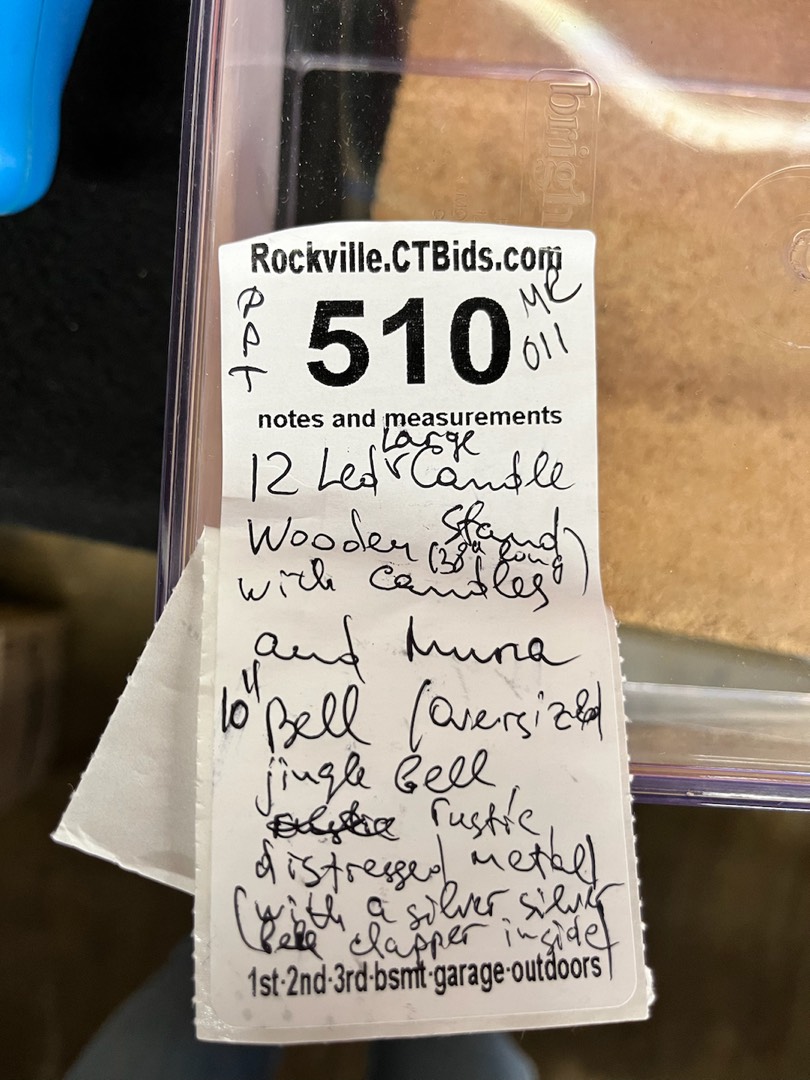 brigh
Rockville.CTBids.com
PPT
510
MR
011
notes and measurements
Large
12 Led Candle
Wooden Stand
(38" long)
with candles
and
10" Bell (oversized
jingle bell,
rustic,
distressed metal)
(with a silver silver
clapper inside)
1st·2nd·3rd·bsmt·garage·outdoors